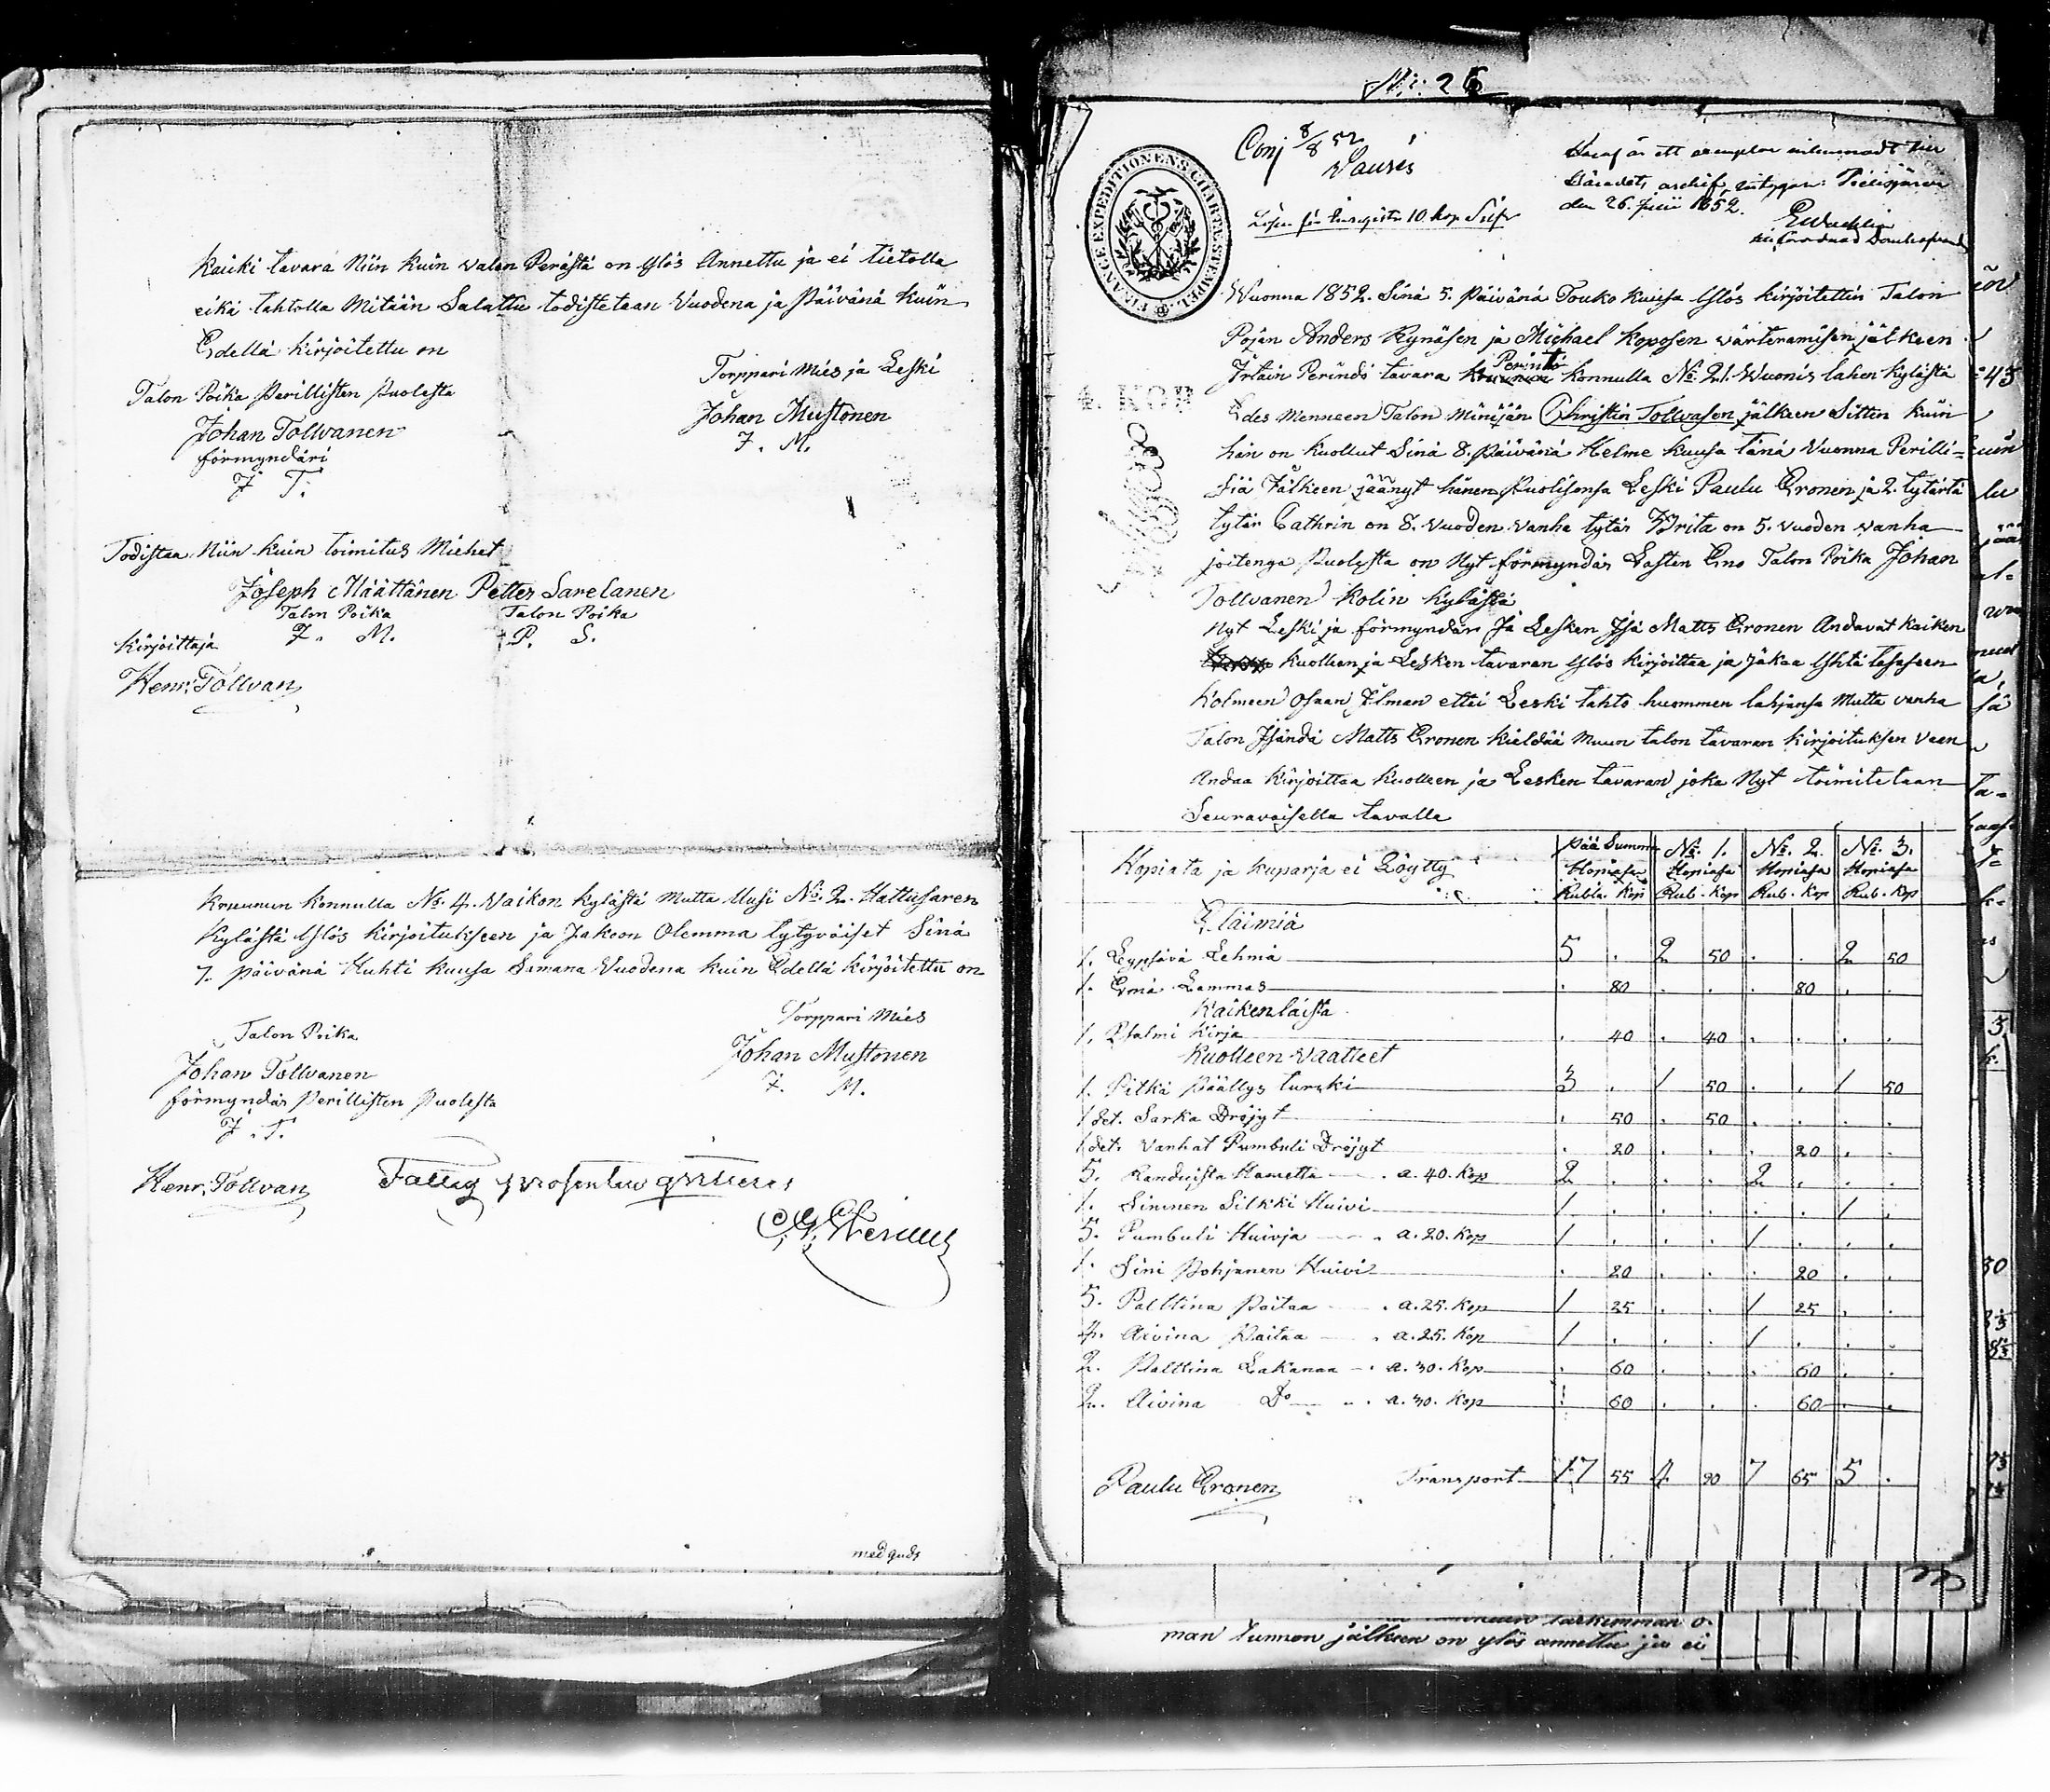 Kaicki tavara Niin Kuin valan Perästä on Ylös Annettu ja ei tietolla
eikä tahtolla Mitään Salattu todistetaan Vuodena ja Päivänä Kuin
Edellä Kirjoitettu on
Talon Poika Perillisten Puolesta
Johan Tollvanen
förmyndäri
J. T.
Torppari Mies ja Leski
Johan Mustonen
J. M.
Todistaa Niin Kuin toimitus Miehet
Joseph Määttänen Petter Sarelanen
Talon Poika Talon Poika
J. M. P. S.
Kirjoittaja
Henr. Tollvan
Kruunun Konnulla No. 4. Vaikon Kylästä Mutta Uusi No. 2. Hattusaren
Kylästä Ylös Kirjoitukseen ja Jakoon Olemma tytyväiset Sinä
7. päivänä Huhti Kuusa Samana Vuodena Kuin Edellä Kirjoitettu on
Talon Poika
Johan Tollvanen
förmyndär Perillisten Puolesta
J. T.
Torppari Mies
Johan Mustonen
J. M.
Henr. Tollvan
med guds
No: 26
Conj 8/8 52
FINANCE EXPEDITIONENS CHARTÆ STEMPEL
4. KOP
den 26. Juni 1852.
Wuonna 1852. Sinä 5. Päivänä Touko Kuusa Ylös Kirjoitettin Talon
Pojan Anders Rynäsen ja Michael Koposen värteramisen jälkeen
Irtain Perindö tavara Perintö Konnulla No. 21. Wuonis lahen Kylästä
Edes Menneen Talon Minijän Christin Tollvasen jälkeen Sitten Kuin
hän on Kuollut Sinä 8. Päivänä Helme Kuusa tänä Vuonna Perilli-
siä Jälkeen jäänyt hänen Puolisonsa Leski Paulu Eronen ja 2. tytärtä
tytär Cathrin on 8. Vuoden Vanha tytär Brita on 5. Vuoden Vanha
joitenga Puolesta on Nyt förmyndär Lasten Eno Talon Poika Johan
Tollvanen Kolin Kylästä
Nyt Leski ja förmyndär Ja Lesken Isä Matts Eronen Andavat Kaiken
Kuolleen ja Lesken tavaran Ylös Kirjoittaa ja Jakaa Yhtä tasaseen
Kolmeen Osaan Ilman ettei Leski tahto huommen lahjansa Mutta vanha
Talon Isändä Matts Eronen Kieldää Muun talon tavaran Kirjoituksen Vaen
Andaa Kirjoittaa Kuolleen ja Lesken tavaran joka Nyt toimitetaan
Seuravaisella tavalla
Hopiata ja Kuparja ei Löytty
Pää Summa No. 1. No. 2. No. 3.
Hopiasa Hopiasa Hopiasa Hopiasa
Rubla. Kop Rub. Kop Rub. Kop Rub. Kop
Eläimiä
1. Lypsävä Lehmä 5 . 2 50 . . 2 50
1. Emä Lammas . 80 . . . 80 . .
Kaikenlaista
1. Psalmi Kirja . 40 . 40 . . . .
Kuolleen Vaatteet
1. Pitkä Päällys turkki 3 . 1 50 . . 1 50
1 det. Sarka Dröjyt . 50 . 50 . . . .
1 det. Vanhat Pumbuli Dröjyt . 20 . . . 20 . .
5. Randuista Hametta a. 40. Kop 2 . . . 2 . . .
1. Sininen Silkki Huivi 1 . . . . . 1 .
5. Pumbuli Huivja a. 20. Kop 1 . . . 1 . . .
1. Sini Pohjanen Huivi . 20 . . . 20 . .
5. Palttina Paitaa a. 25. Kop 1 25 . . 1 25 . .
4. Aivina Paitaa a. 25. Kop 1 . . . 1 . . .
2. Palttina Lakanaa a. 30. Kop . 60 . . . 60 . .
2. Aivina Do a. 30. Kop . 60 . . . 60 . .
Paulu Eronen Transport 17 55 4 90 7 65 5 .
tarkimman o-
man tunnon jälkeen on ylös annettu ja ei